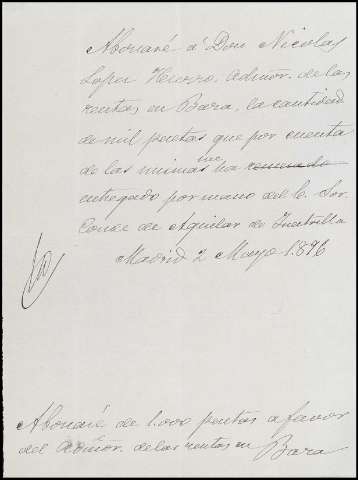 Abonaré á Don Nicolas
Lopez Hierro, Admor. de las
rentas en Baza, la cantidad
de mil pesetas que por cuenta
de las mismas me ha remesado
entregado por mano del E. Sor.
Conde de Aguilar de Inestrilla
Madrid 2 Mayo 1.896
Abonaré de 1.000 pesetas a favor
del Admor. de las rentas en Baza